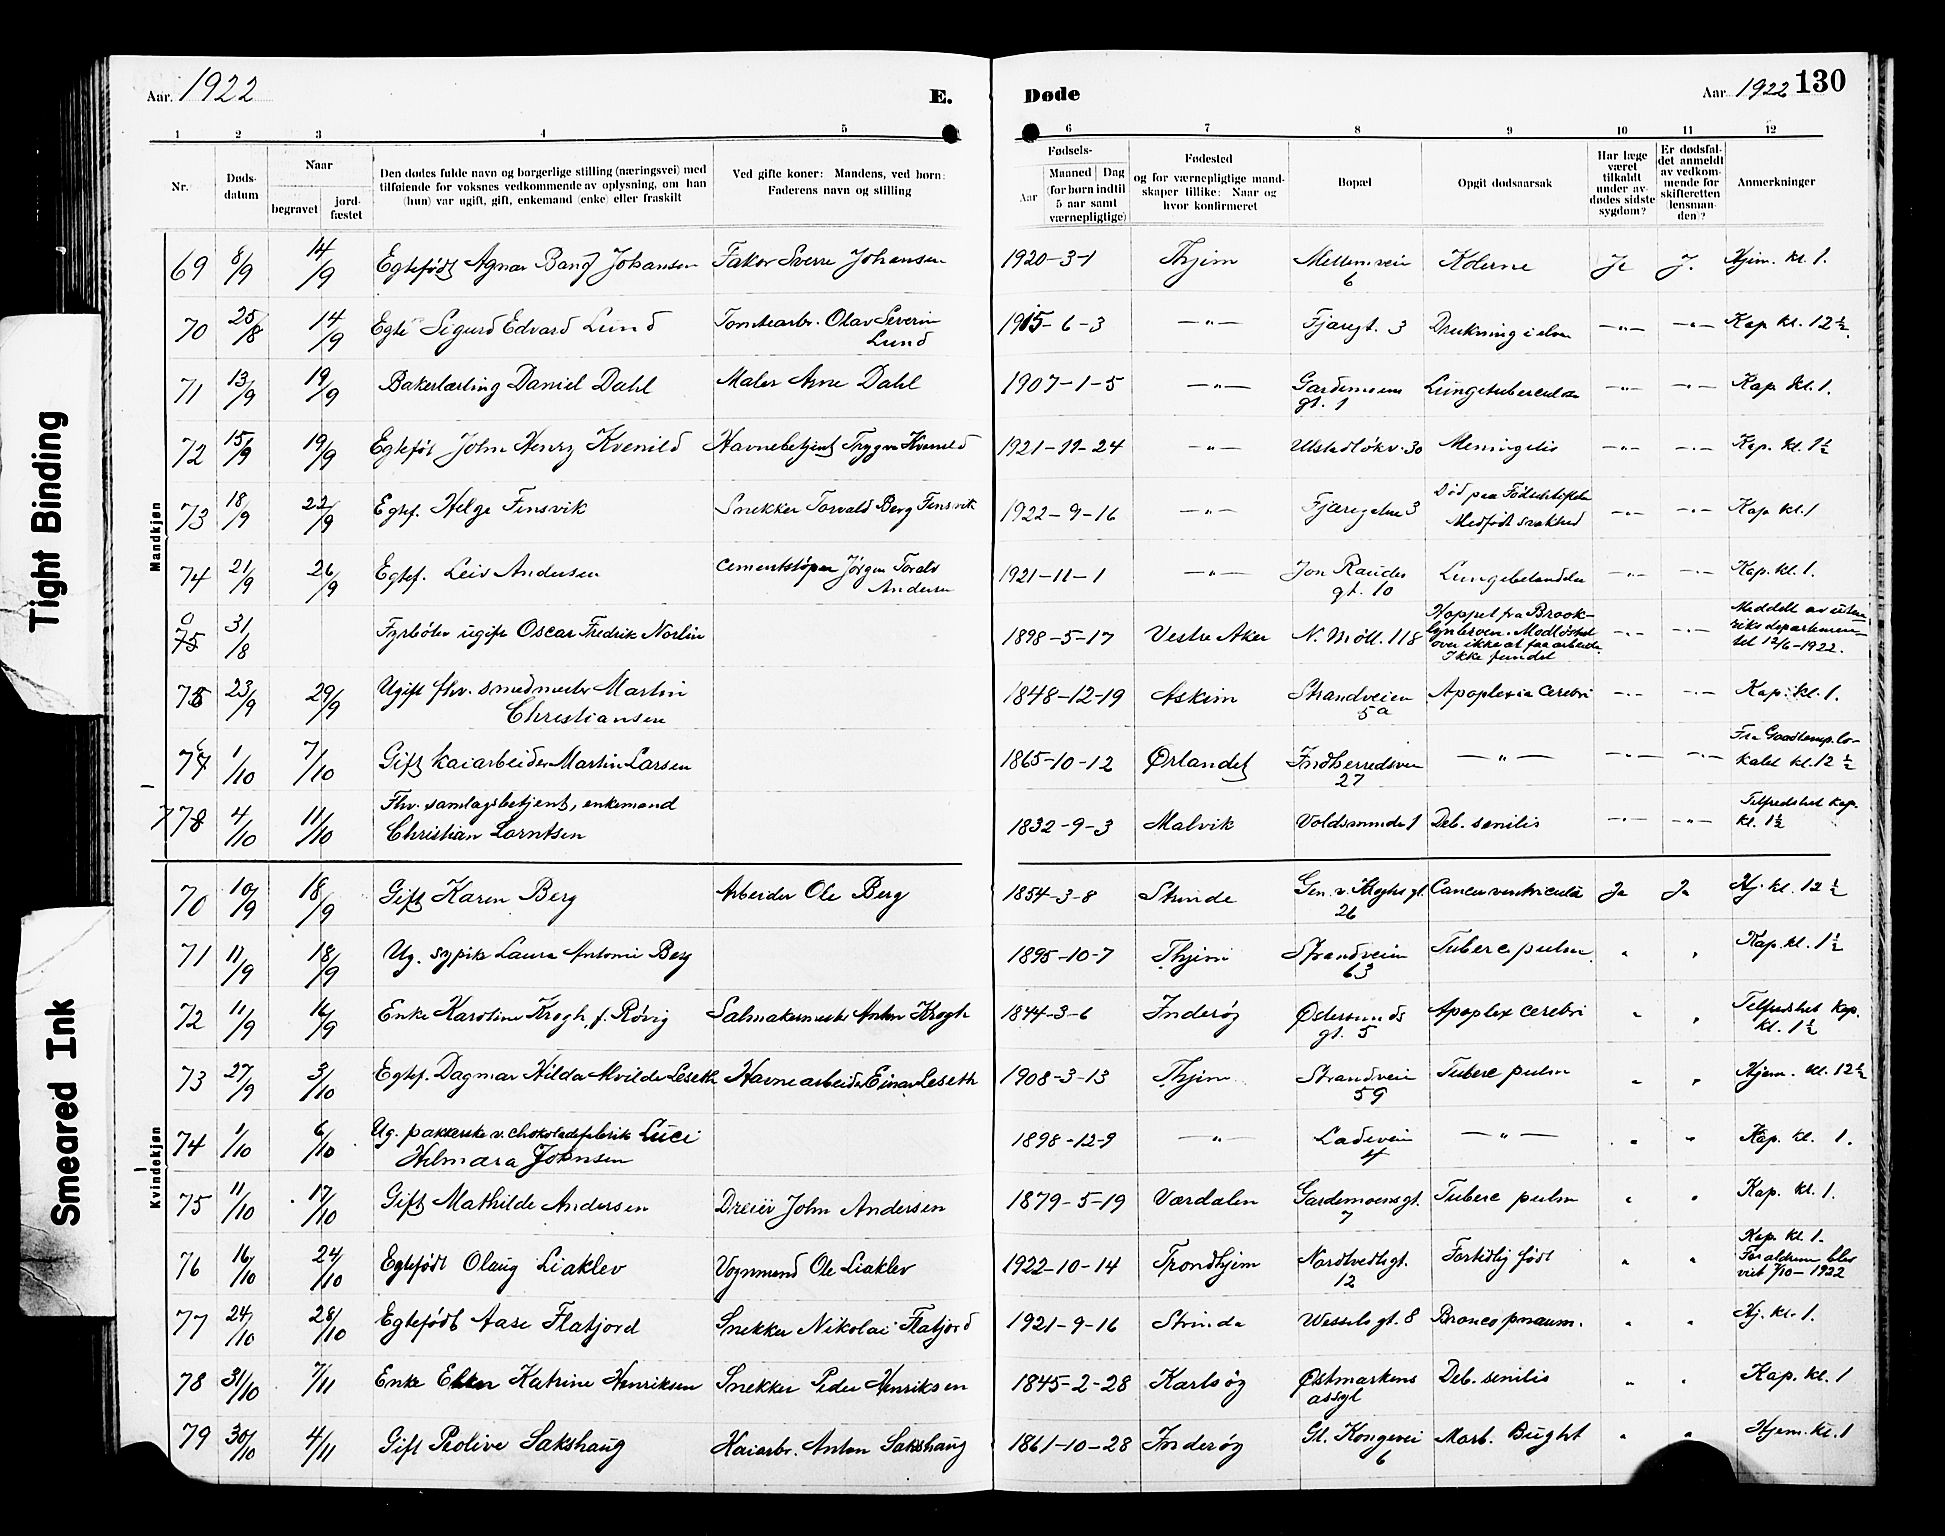 Tight Binding
Smeared Ink
Aar. 1922
E.
Døde
Aar 1922 130
1 2 3 4 5 6 7 8 9 10 11 12
Nr.
Døds-
datum
Naar
begravet
jord-
fæstet
Den dødes fulde navn og borgerlige stilling (næringsvei) med
tilføiende for voksnes vedkommende av oplysning, om han
(hun) var ugift, gift, enkemand (enke) eller fraskilt
Ved gifte koner: Mandens, ved børn:
Faderens navn og stilling
Fødsels-
Aar
Maaned Dag
(for børn indtil
5 aar samt
værnepligtige)
Fødested
og for værnepligtige mand-
skaper tillike: Naar og
hvor konfirmeret
Bopæl
Opgit dødsaarsak
Har læge
været
tilkaldt
under av-
dødes sidste
sygdom?
Er dødsfal-
det anmeldt
av vedkom-
mende for
skifteretten
(lensman-
den)?
Anmerkninger
Mandkjøn
69 8/9 14/9 Egtefødt Agnar Bang Johansen Faktor Sverre Johansen 1920-3-1 Thjem Mellemveie 6 Kolerne Ja J. Hjem. kl. 1.
70 25/8 14/9 Egte Sigurd Edvard Lund Tomtearb. Olav Severin Lund 1915-6-3 —"— Fjæregt. 3 Drukning i elven —"— —"— Kap kl. 12 1/2
71 13/9 19/9 Bakerlærling Daniel Dahl Maler Arne Dahl 1907-1-5 —"— Gardemoens gt. 1 Lungetuberculose —"— —"— Kap. kl. 1.
72 15/9 19/9 Egtefød John Henry Kvenild Havnebetjent Trygve Kvenild 1921-11-24 —"— Ulstadløkv. 30 Meningitis —"— —"— Kap. kl. 1 1/2
73 18/9 22/9 Egtef. Helge Finsvik Snekker Torvald Berg Finsvik 1922-9-16 —"— Fjæregaten 3 Død paa Fødselstiftelsen Medfødt svakhed —"— —"— Kap kl. 1
74 21/9 26/9 Egtef. Leiv Andersen Cementstøper Jørgen Toralf Andersen 1921-11-1 —"— Jon Raudes gt. 10 Lungebetændelse —"— —"— Kap. kl. 1.
75 31/8 Fyrbøter ugift Oscar Fredrik Norlin 1898-5-17 Vestre Aker N. Møll. 118 Hoppet fra Brook-
lynbroen. Modløshet
over ikke at faa arbeide.
Ikke fundet —"— —"— Meddelt av uten-
riksdepartemen-
tet 12/6-1922.
76 23/9 29/9 Ugift fhv. smedmester Martin
Christiansen 1848-12-19 Askim Strandveien 5a Apoplexia cerebri —"— —"— Kap. kl. 1.
77 1/10 7/10 Gift kaiarbeider Martin Larsen 1865-10-12 Ørlandet Indherredsvei 27 —"— —"— —"— Fra Goodtemp.lo-
kalet kl. 12 1/2
78 4/10 11/10 Fhv. samlagsbetjent, enkemand
Christian Lorntsen 1832-9-3 Malvik Voldsminde 1 Deb. senilis —"— —"— Tilfredshet kap.
kl. 1 1/2
Kvindekjøn
70 10/9 18/9 Gift Karen Berg Arbeider Ole Berg 1854-3-8 Strinda Gen. v. Kroghs gt. 26 Cancer ventriculi Ja Ja Hj. kl. 12 1/2
71 11/9 18/9 Ug. sypike Laura Antonie Berg 1895-10-7 Thjem Strandveien 63 Tuberc pulm. " " Kap. kl. 1 1/2
72 11/9 16/9 Enke Karoline Krogh, f. Røvig Salmakermester Anton Krogh 1844-3-6 Inderøy Ødersunds gt. 5 Apoplex cerebri " " Tilfredshet kap.
kl. 1 1/2
73 27/9 3/10 Egtef. Dagmar Hilda Alvilde Leseth Havnearbeider Einar Leseth 1908-3-13 Thjem Strandvei 59 Tuberc pulm " " Hjem. kl. 12 1/2
74 1/10 6/10 Ug. pakkerske v. chokoladefabrik Luci
Hilmara Johnsen 1898-12-9 —"— Ladevein 4 —"— " " Kap. kl. 1.
75 11/10 17/10 Gift Mathilde Andersen Dreier John Andersen 1879-5-19 Værdalen Gardemoensgt. 7 Tuberc pulm " " Kap. kl. 1.
76 16/10 24/10 Egtefødt Olaug Liaklev Vognmand Ole Liaklev 1922-10-14 Trondhjem Nardtvedtsgt. 12 Fortidlig født " " Kap. kl. 1.
Forældrene blev
viet 7/10-1922
77 24/10 28/10 Egtefødt Aase Flatjord Snekker Nikolai Flatjord 1921-9-16 Strinda Wesselsgt. 8 Broncopneum. " " Hj. kl. 1.
78 31/10 7/11 Enke Ellen Katrine Henriksen Snekker Peder Henriksen 1845-2-28 Karlsøy Østmarkens
asyl Deb. senilis " " Kap. kl. 1
79 30/10 4/11 Gift Peolive Sakshaug Kaiarb. Anton Sakshaug 1861-10-28 Inderøy Gl. Kongevei 6 Morb. Bright " " Hjem. kl. 1